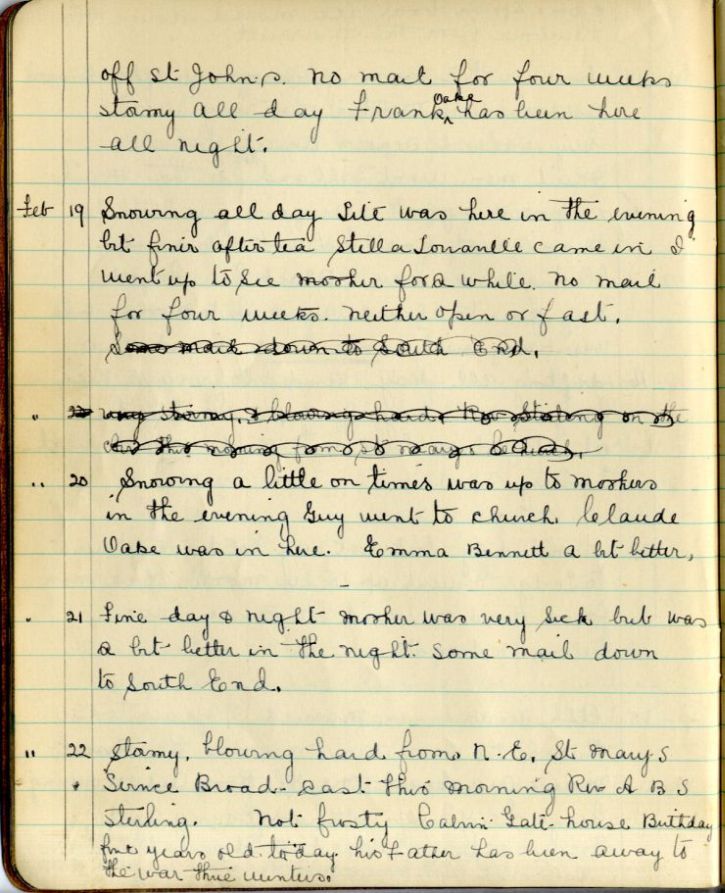 off St Johns. No mail for four weeks
stormy all day Frank Oake has been here
all night.
Feb 19 Snowing all day Lile was here in the evening
bit finer after tea Stella Lowanelle came in I
went up to See mother for a while. no mail
for four weeks. neither open or fast.
Some mail down to South End.
" very stormy, & blowing hard. Rev Stirling on the
this morning from St Mary's Church.
" 20 Snowing a little on times was up to mothers
in the evening Guy went to church Claude
Oake was in here. Emma Bennett a bit better,
" 21 Fine day & night mother was very Sick but was
a bit better in the night. Some mail down
to South End.
" 22 Stormy, blowing hard from N.E. St Marys
Service Broad-cast this morning Rev A B S
Stirling. Not frosty Calvin Gate-house Birthday
five years old to day his Father has been away to
the war three winters.